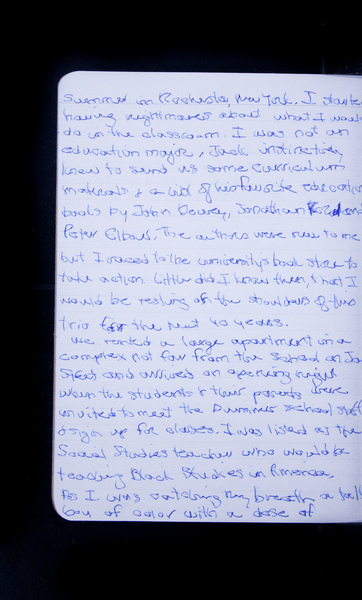 summer in Rochester, New York. I started
having nightmares about what I would
do in the classroom. I was not an
education major, Jack instinctively
knew to send us some curriculum
materials & a list of his favorite education
books by John Dewey, Jonathan Kozol and
Peter Elbow. The authors were new to me
but I raced to the university's book store to
take action. Little did I know then, that I
would be resting on the shoulders of this
trio for the next 40 years.
We rented a large apartment in a
complex not far from the school on
Street and arrived on opening night
when the students & their parents were
invited to meet the summer school staff
& sign up for classes. I was listed as the
Social Studies teacher who would be
teaching Black Studies in America.
As I was catching my breath a tall
boy of color with a dose of